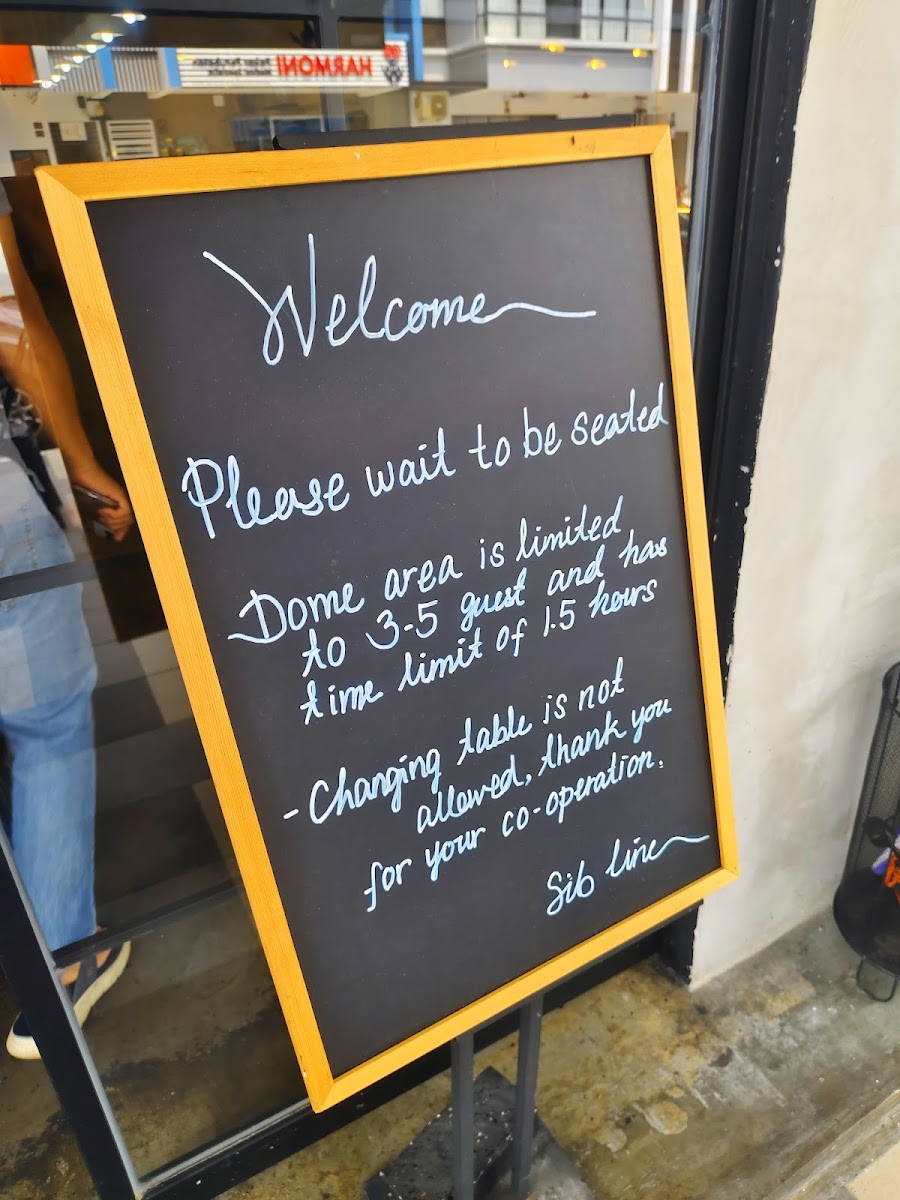 HARMONI
Welcome
Please wait to be seated
Dome area is limited
to 3-5 guest and has
time limit of 1.5 hours
- Changing table is not
allowed, thank you
for your co-operation.
Sib line